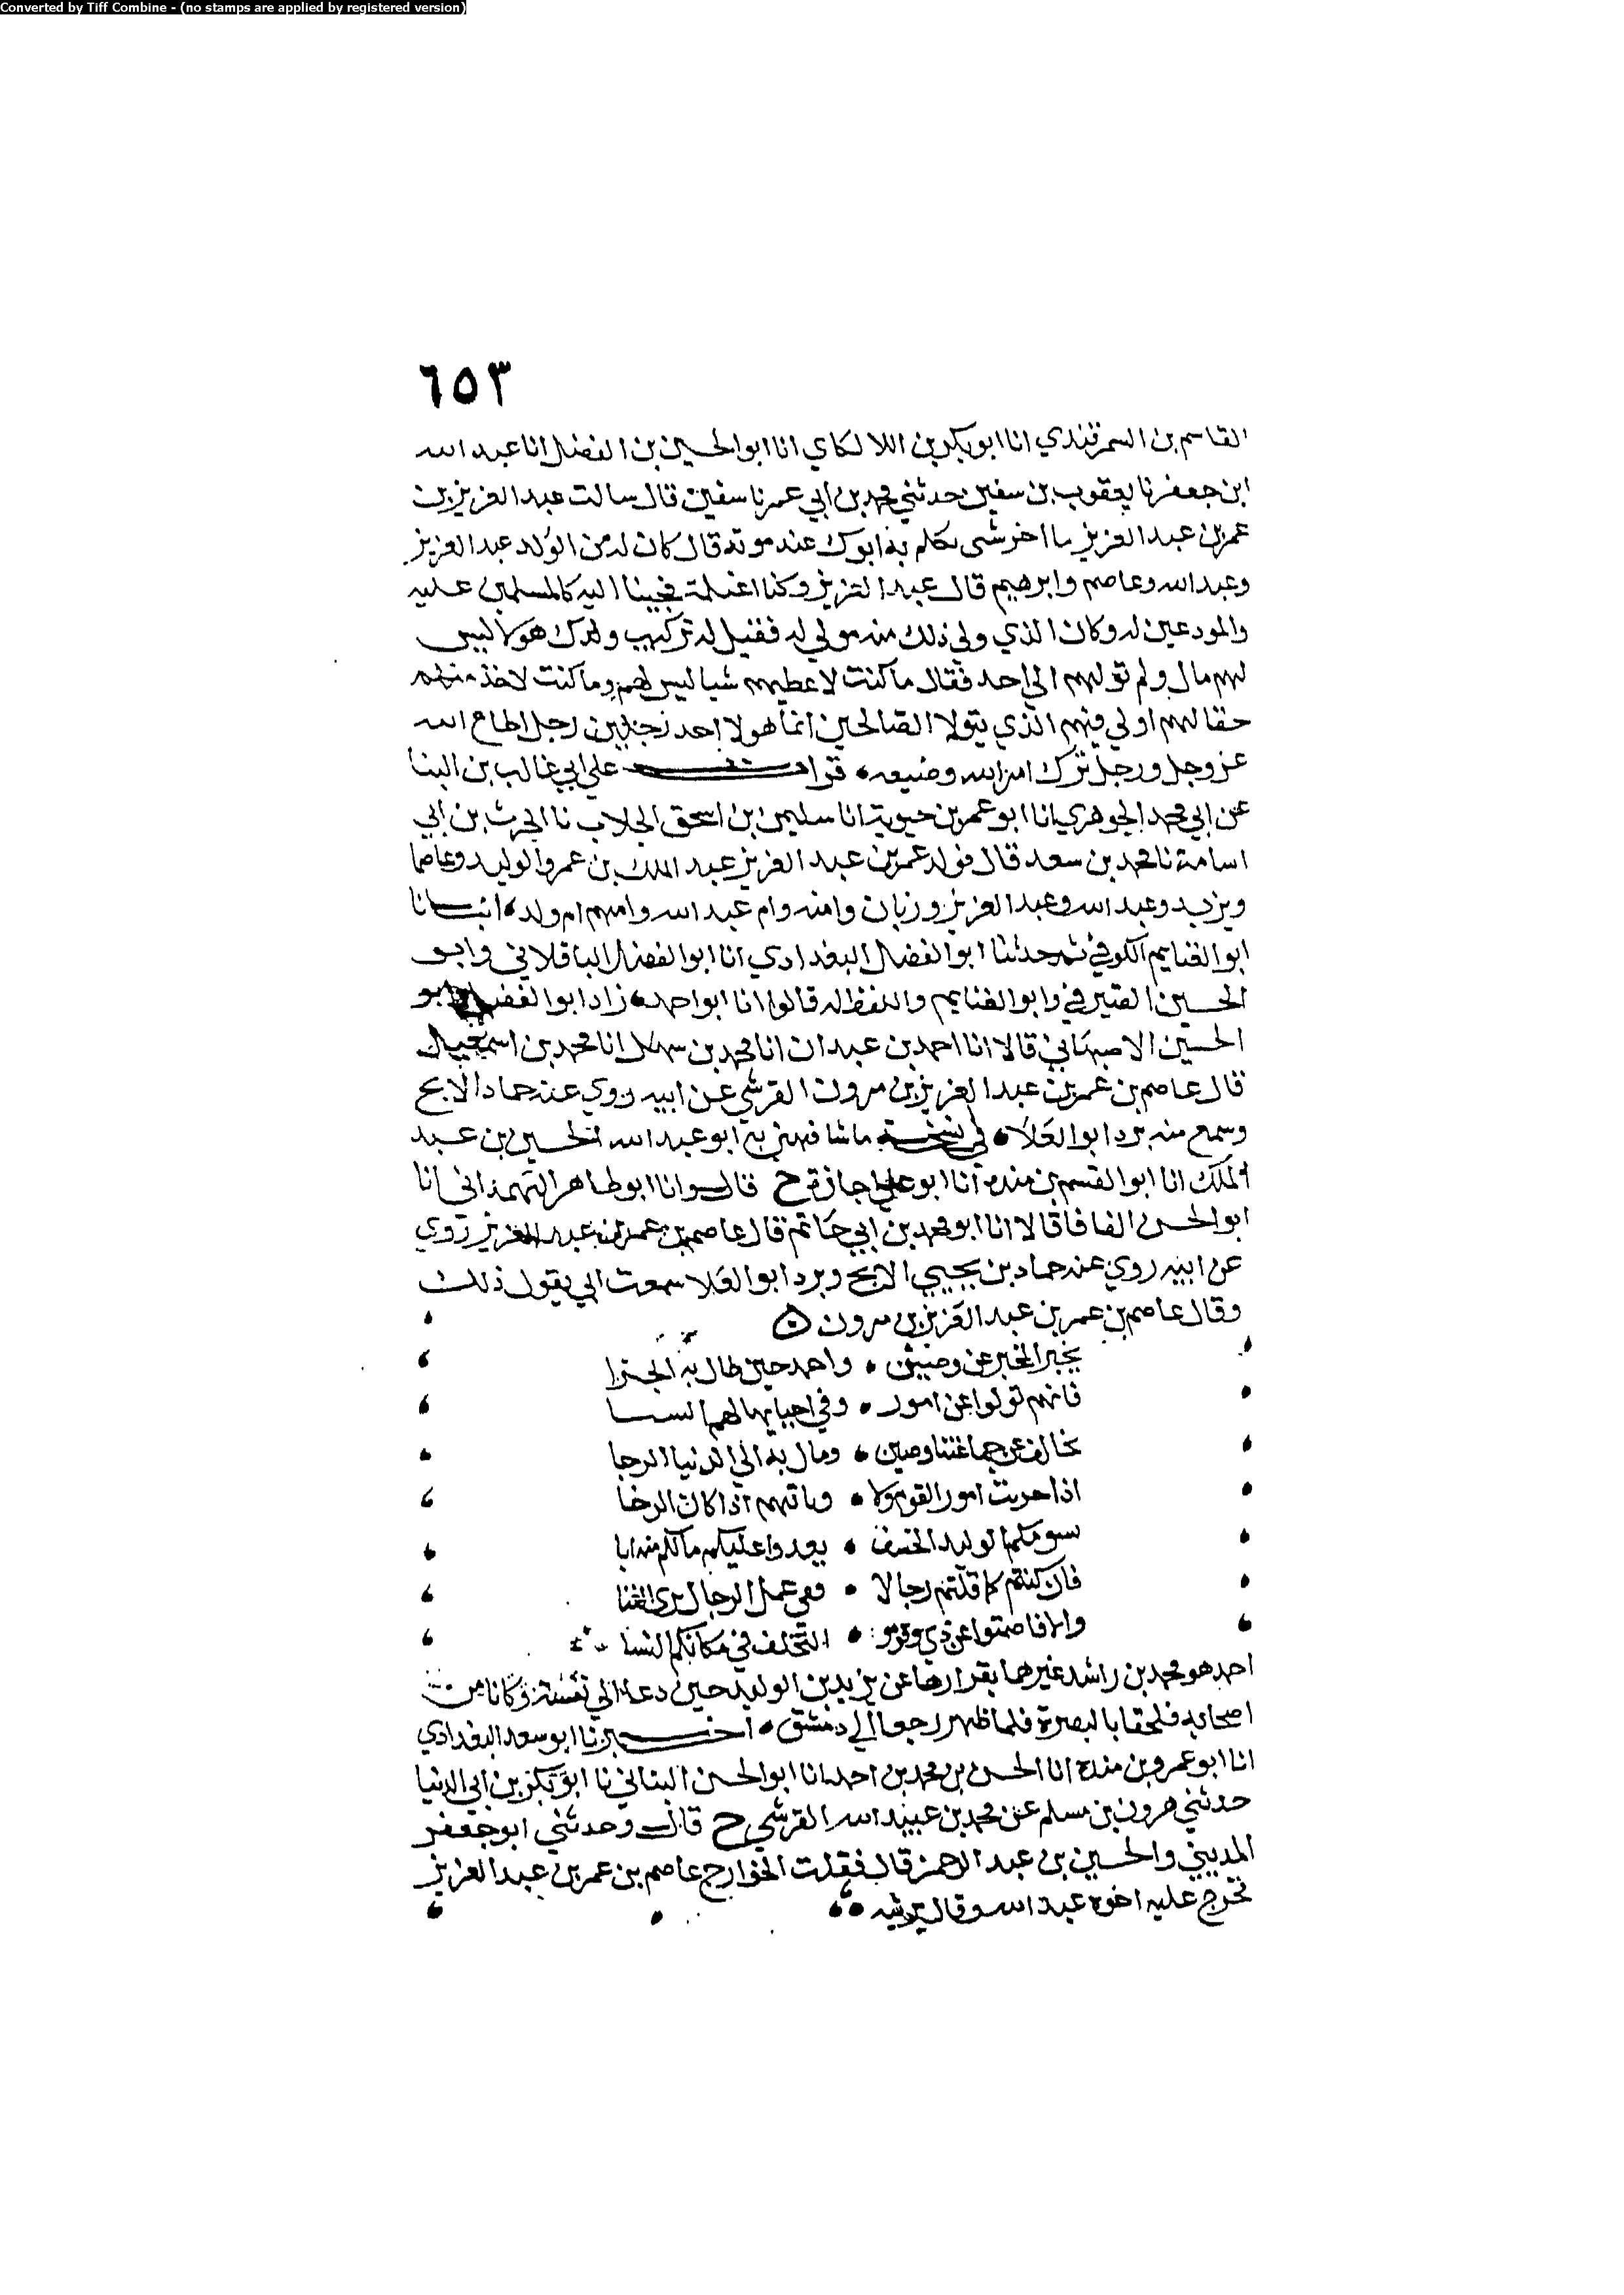 Converted by Tiff Combine - (no stamps are applied by registered version)
٦٥٣
القاسم بن السمرقندي انا ابو بكر بن اللالكاي انا ابو الحسين بن الفضل انا عبد الله
ابن جعفر نا يعقوب بن سفين حدثني محمد بن ابي عمر نا سفين قال سالت عبد العزيز بن
عمر بن عبد العزيز ما اخر شي تكلم به ابوك عند موته قال كان له من الولد عبد العزيز
وعبد الله وعاصم وابرهيم قال عبد العزيز وكنا اغيلمة فجينا اليه كالمسلمين عليه
والمودعين له وكان الذي ولي ذلك منه مولي له فقيل له تركت ولدك هولا ليس
لهم مال ولم تولهم الي احد فقال ما كنت لاعطيهم شيا ليس لهم وما كنت لاخذ منهم
حقا لهم اولي فيهم الذي يتولا الصالحين انما هولا احد رجلين رجل اطاع الله
عز وجل ورجل ترك امر الله وضيعه قرات علي ابي غالب بن البنا
عن ابي محمد الجوهري انا ابو عمر بن حيوية انا سليمن بن اسحق الجلاب نا الحرث بن ابي
اسامة نا محمد بن سعد قال فولد عمر بن عبد العزيز عبد الملك بن عمر والوليد وعاصما
ويزيد وعبد الله وعبد العزيز وزبان وامنه وام عبد الله وامهم ام ولد انبانا
ابو الغنايم الكوفي ثم حدثنا ابو الفضل البغدادي انا ابو الفضل الباقلاني وابو
الحسين الصيرفي وابو الغنايم واللفظ له قالوا انا ابو احمد زاد ابو الفضل وابو
الحسين الاصبهاني قالا انا احمد بن عبدان انا محمد بن سهل انا محمد بن اسمعيل
قال عاصم بن عمر بن عبد العزيز بن مرون القرشي عن ابيه روي عنه حماد الابح
وسمع منه برد ابو العلا في نسخة ما شافهني به ابو عبد الله الحسين بن عبد
الملك انا ابو القسم بن منده انا ابو علي اجازة ح قال وانا ابو طاهر الهمذاني انا
ابو الحسن الفافا قالا انا ابو محمد بن ابي حاتم قال عاصم بن عمر بن عبد العزيز روي
عن ابيه روي عنه حماد بن يحيي الابح وبرد ابو العلا سمعت ابي يقول ذلك
وقال عاصم بن عمر بن عبد العزيز بن مرون
يخبر المخبر عن واحمد حين طال به
فانهم تولوا عن امور وفي لهم
خالف عن جماعتنا ومال به الي الدنيا الرجا
اذا امور القوم اذا كان الرخا
الوليد عليكم ما لكم منه
فان كنتم كما قلتم رجالا ففي عمل الرجال
والا فاصمتوا عن ذي في مكانكم النسا
احمد هو محمد بن راشد عن يزيد بن الوليد حين دعا الي نفسه وكانا من
اصحابه فلحقا بالبصرة فلما ظهر رجعا الي دمشق اخبرنا ابو سعد البغدادي
انا ابو عمرو بن منده انا الحسن بن محمد بن احمد انا ابو الحسن البناني نا ابو بكر بن ابي الدنيا
حدثني هرون بن مسلم عن محمد بن عبيد الله القرشي ح قال وحدثني ابو جعفر
المديني والحسين بن عبد الرحمن قال فقلت الخوارج عاصم بن عمر بن عبد العزيز
تخرج عليه اخوه عبد الله وقال يرثيه